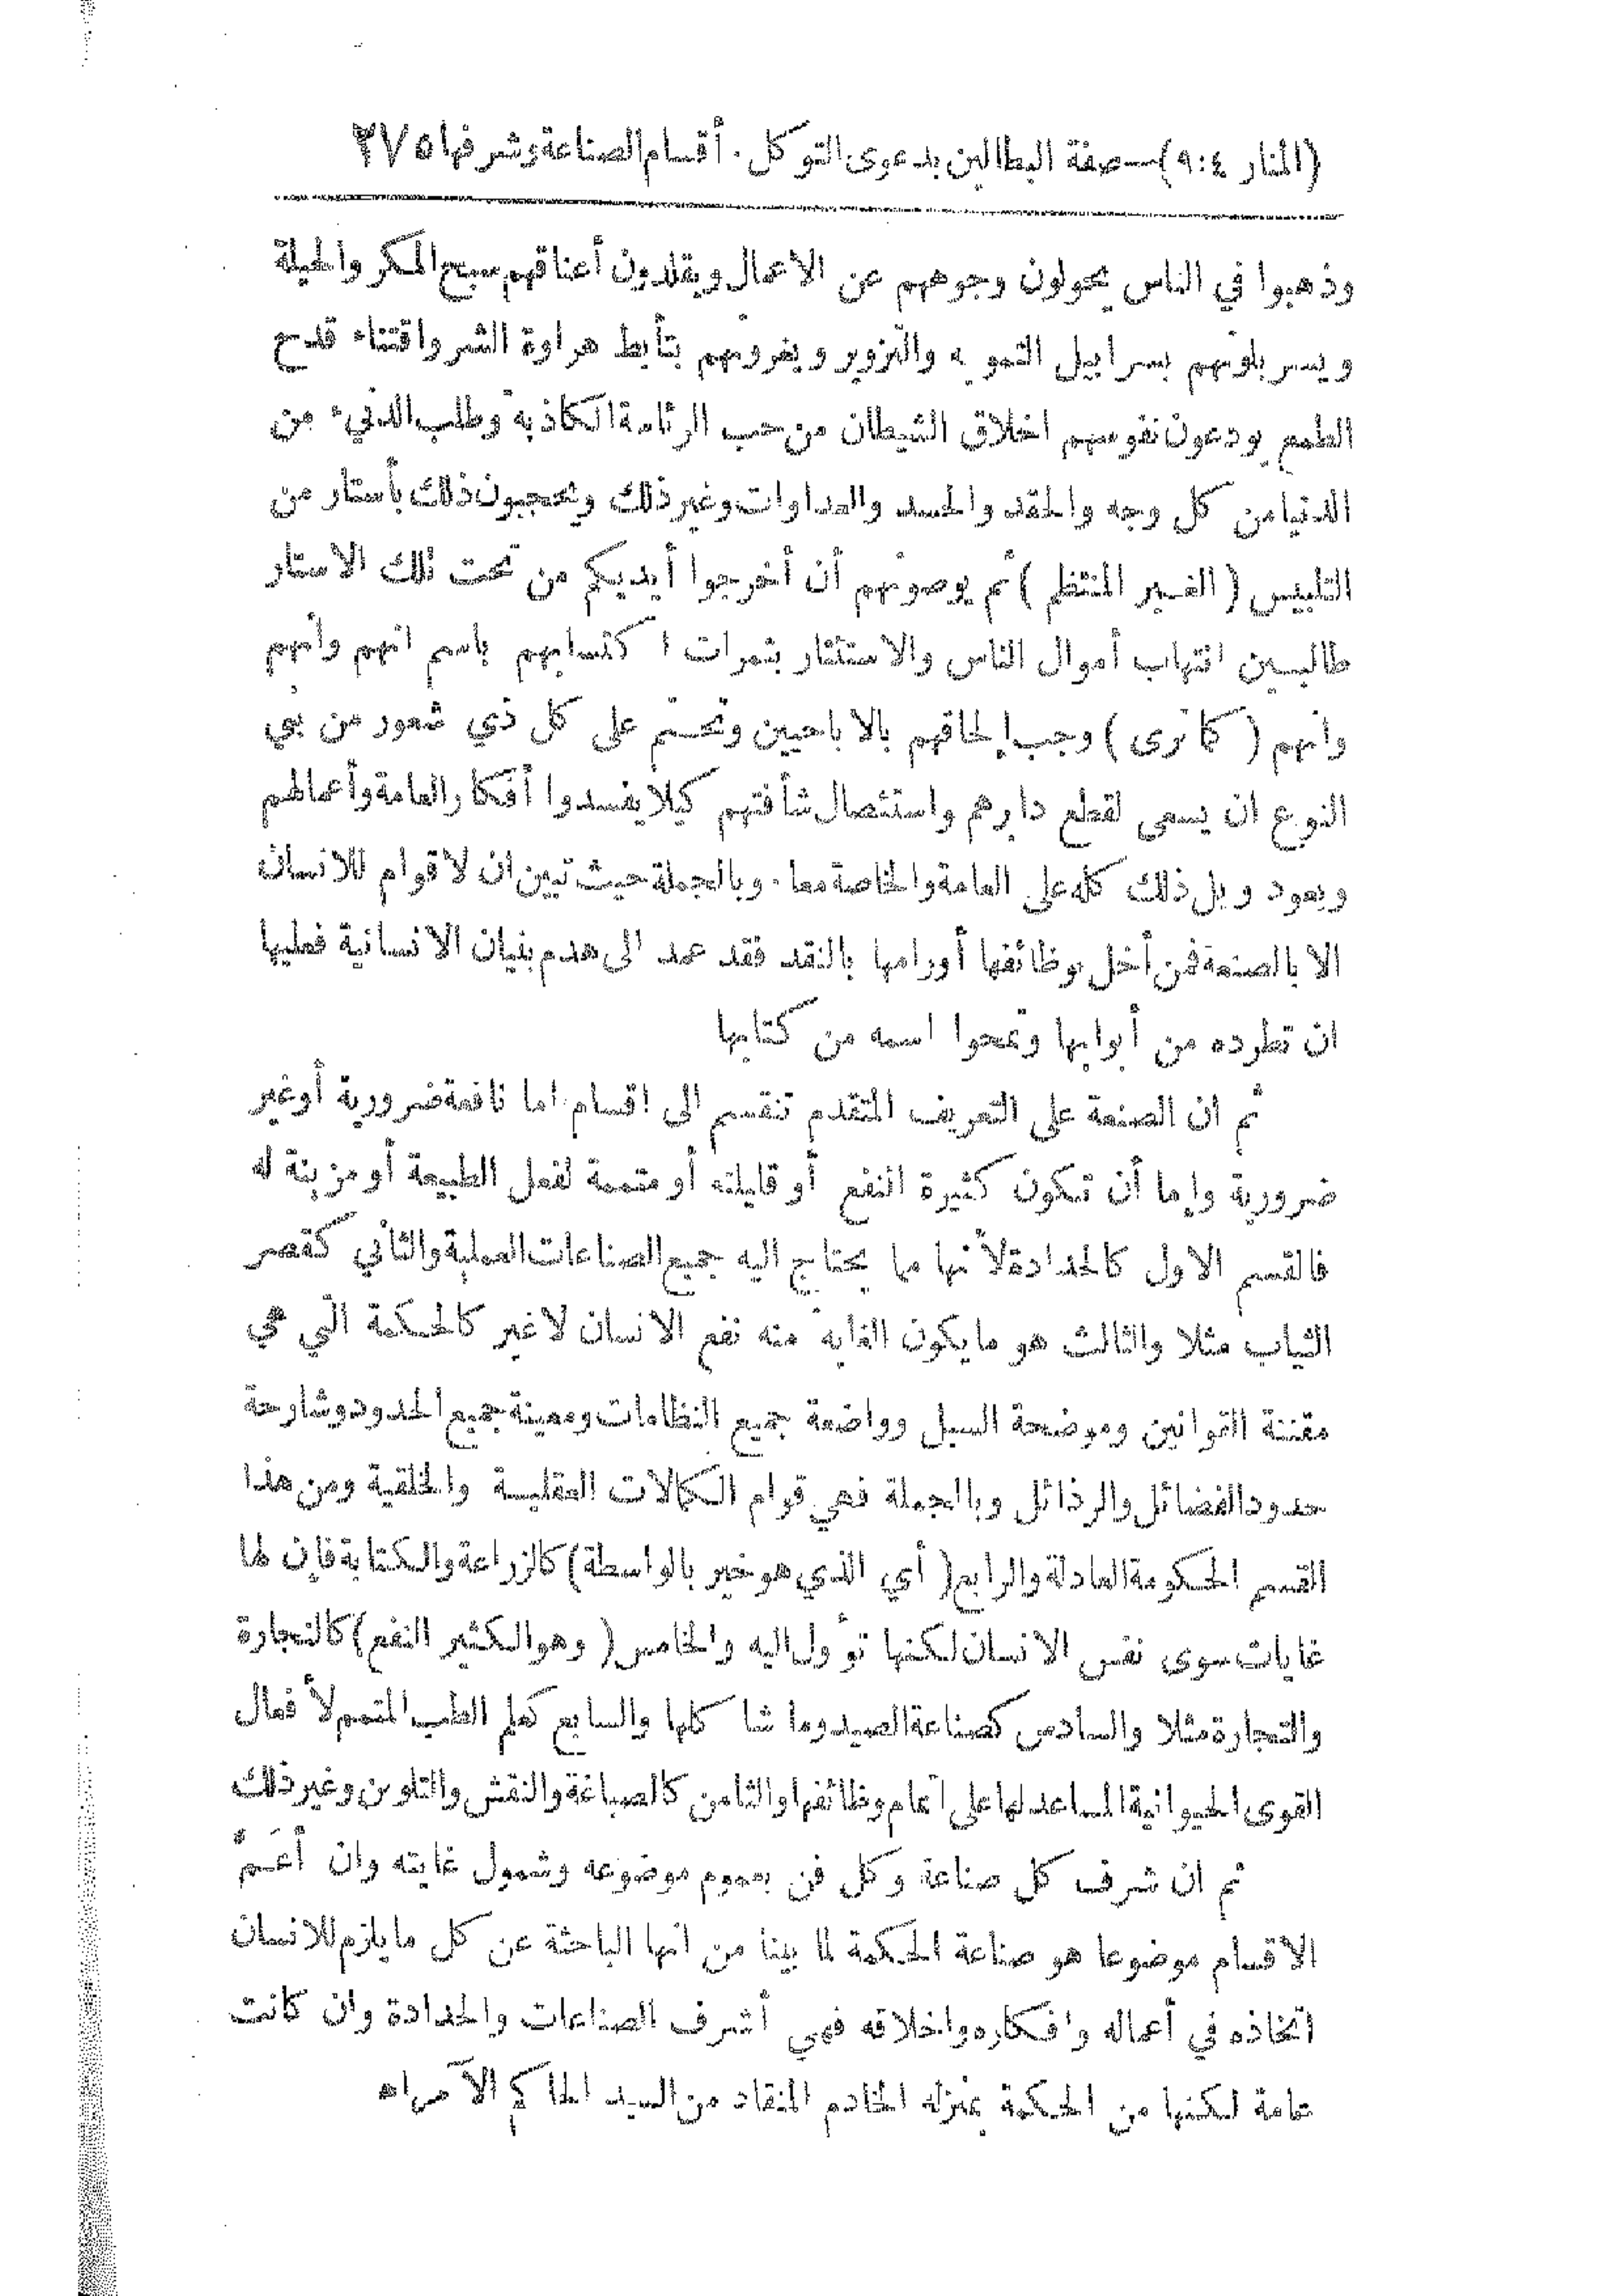 (المنار ٩:٤)—صفة البطالين بدعوى التوكل. أقسام الصناعة وشرفها ٣٧٥
وذهبوا في الناس يحولون وجوههم عن الاعمال ويقلدون أعناقهم سبح المكر والحيلة
ويسربلونهم بسرابيل التمويه والتزوير ويغرونهم بتأبط هراوة الشر واقتناء قدح
الطمع يودعون نفوسهم اخلاق الشيطان من حب الرئاسة الكاذبة وطلب الدنيء من
الدنيا من كل وجه والحقد والحسد والعداوات وغير ذلك ويحجبون ذلك بأستار من
التلبيس (الغير المنتظم) ثم يوصونهم أن أخرجوا أيديكم من تحت تلك الاستار
طالبين انتهاب أموال الناس والاستئثار بثمرات اكتسابهم باسم انهم وانهم
وانهم (كما ترى) وجب إلحاقهم بالاباحيين وتحتم على كل ذي شعور من بني
النوع ان يسعى لقطع دابرهم واستئصال شأفتهم كيلا يفسدوا أفكار العامة وأعمالهم
ويعود وبل ذلك كله على العامة والخاصة معا. وبالجملة حيث تبين ان لا قوام للانسان
الا بالصنعة فمن أخل بوظائفها أو رامها بالنقد فقد عمد الى هدم بنيان الانسانية فعليها
ان تطرده من أبوابها وتمحوا اسمه من كتابها
ثم ان الصنعة على التعريف المتقدم تنقسم الى اقسام اما نافعة ضرورية أو غير
ضرورية وإما أن تكون كثيرة النفع أو قليلته أو متممة لفعل الطبيعة أو مزينة له
فالقسم الاول كالحدادة لأنها مما يحتاج اليه جميع الصناعات العملية والثاني كقصر
الثياب مثلا والثالث هو ما يكون الغاية منه نفع الانسان لا غير كالحكمة التي هي
مقننة القوانين وموضحة السبل وواضعة جميع النظامات ومعينة جميع الحدود وشارحة
حدود الفضائل والرذائل وبالجملة فهي قوام الكمالات العقلية والخلقية ومن هذا
القسم الحكومة العادلة والرابع (أي الذي هو خير بالواسطة) كالزراعة والكتابة فإن لها
غايات سوى نفس الانسان لكنها تؤول اليه والخامس (وهو الكثير النفع) كالنجارة
والتجارة مثلا والسادس كصناعة الصيد وما شاكلها والسابع كعلم الطب المتمم لأفعال
القوى الحيوانية المساعد لها على اتمام وظائفها والثامن كالصباغة والنقش والتلوين وغير ذلك
ثم ان شرف كل صناعة وكل فن بعموم موضوعه وشمول غايته وان أعَمَّ
الاقسام موضوعا هو صناعة الحكمة لما بينا من انها الباحثة عن كل ما يلزم للانسان
اتخاذه في أعماله وافكاره واخلاقه فهي أشرف الصناعات والحدادة وان كانت
عامة لكنها من الحكمة بمنزله الخادم المنقاد من السيد الحاكم الآمر اه